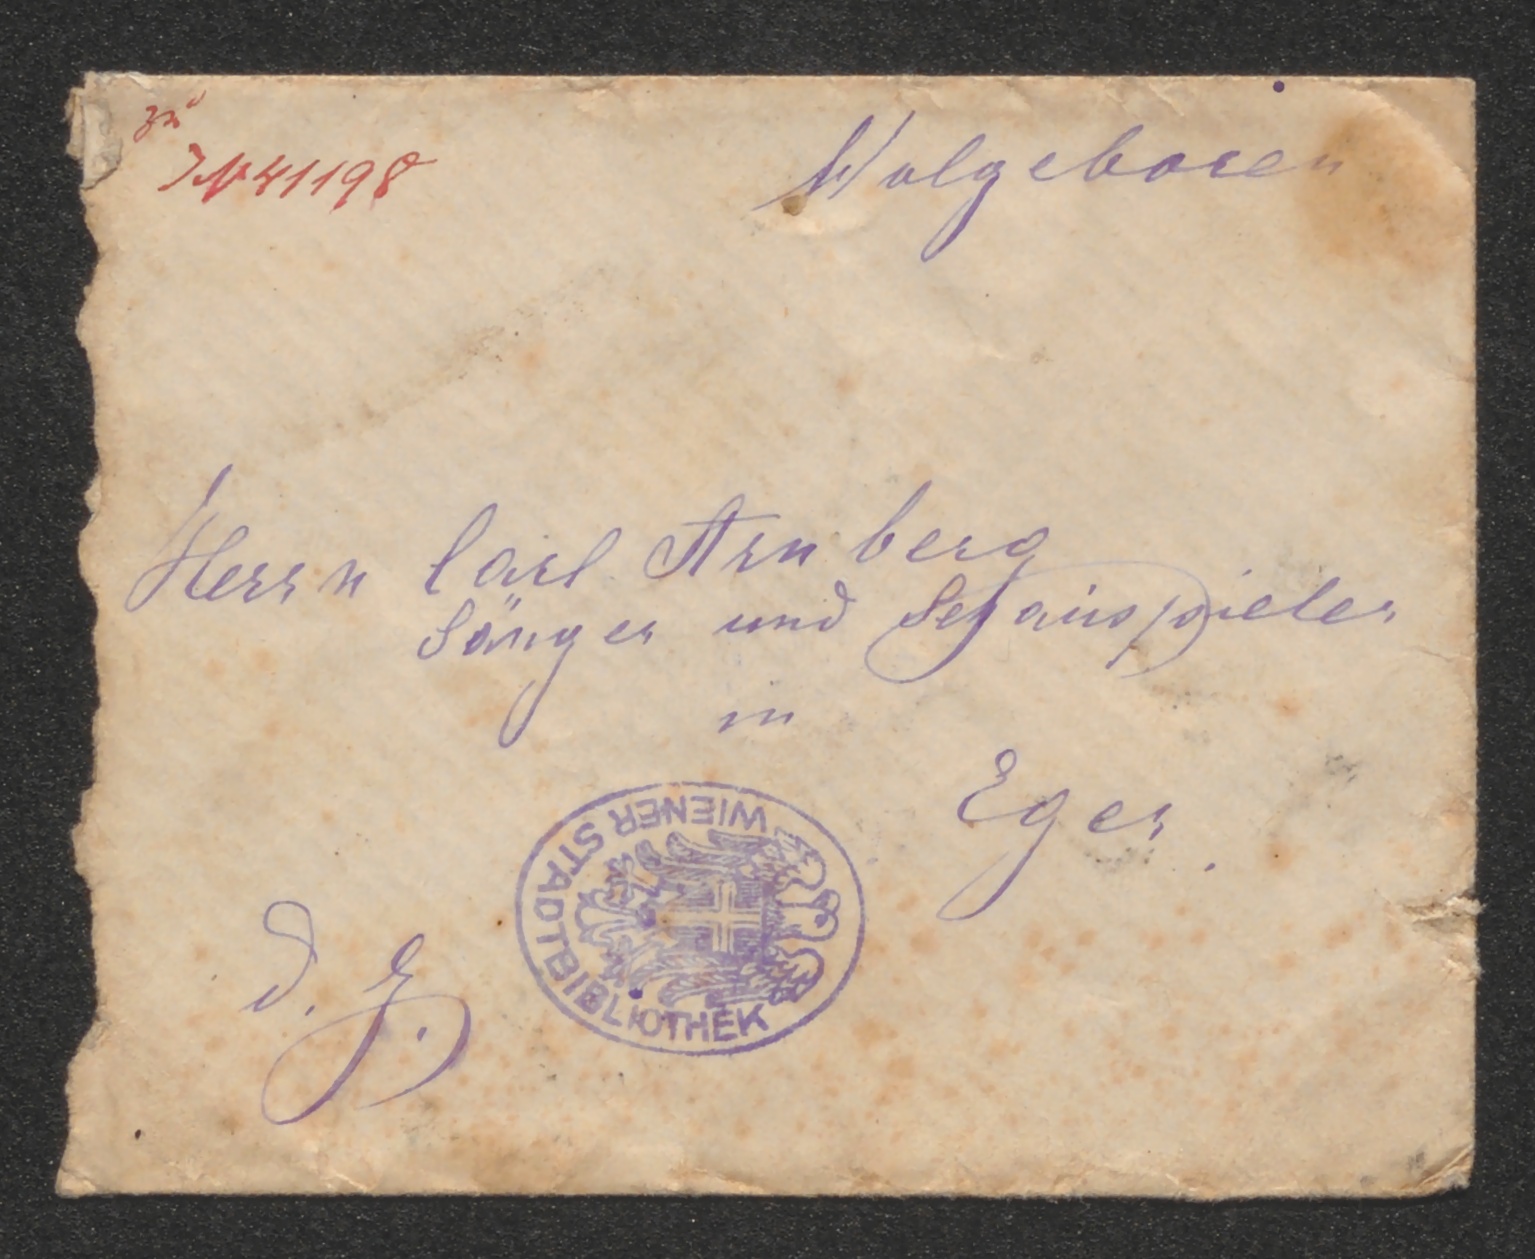 zu
IN 41198
Wolgeboren
Herrn Carl Arnberg
Sänger und Schauspieler
in
Eger.
WIENER STADTBIBLIOTHEK